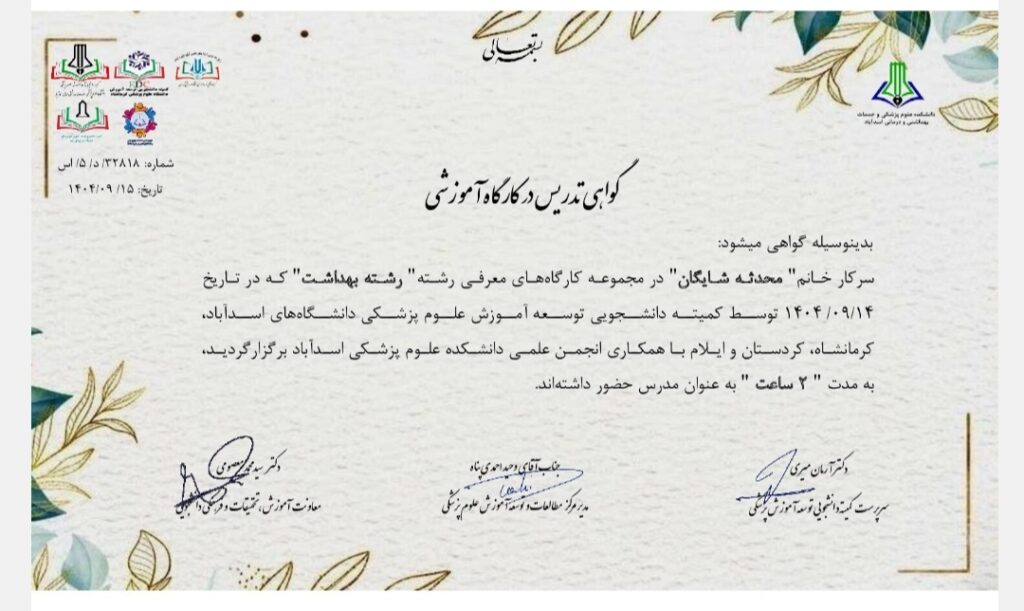 بسمه تعالی
دانشکده علوم پزشکی و خدمات
بهداشتی و درمانی اسدآباد
EDC
شماره: ۳۲۸۱۸/ د/ ۵/ اس
تاریخ: ۱۵/ ۱۴۰۴/۰۹
گواهی تدریس در کارگاه آموزشی
بدینوسیله گواهی میشود:
سرکار خانم" محدثه شایگان" در مجموعه کارگاه‌های معرفی رشته" رشته بهداشت" که در تاریخ
۱۴۰۴/۰۹/۱۴ توسط کمیته دانشجویی توسعه آموزش علوم پزشکی دانشگاه‌های اسدآباد،
کرمانشاه، کردستان و ایلام با همکاری انجمن علمی دانشکده علوم پزشکی اسدآباد برگزارگردید،
به مدت " ۲ ساعت " به عنوان مدرس حضور داشته‌اند.
دکتر آرمان میری
سرپرست کمیته دانشجویی توسعه آموزش پزشکی
جناب آقای وحید احمدی پناه
مدیر مرکز مطالعات و توسعه آموزش علوم پزشکی
دکتر سید محمد معصومی
معاونت آموزش، تحقیقات و فرهنگی دانشجویی